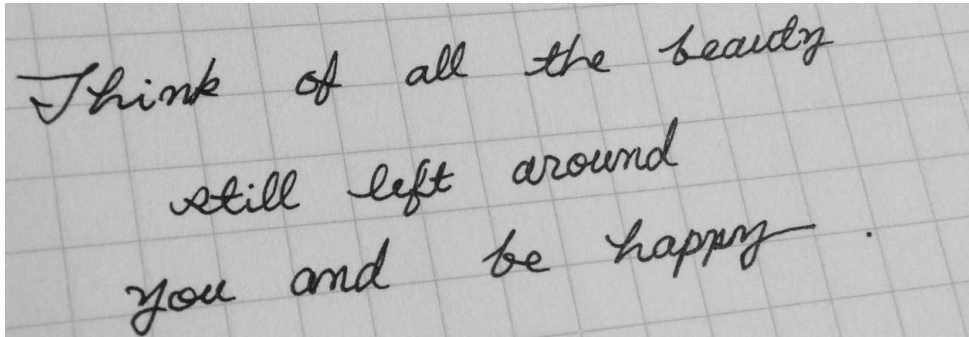 Think of all the beauty
still left around
you and be happy .